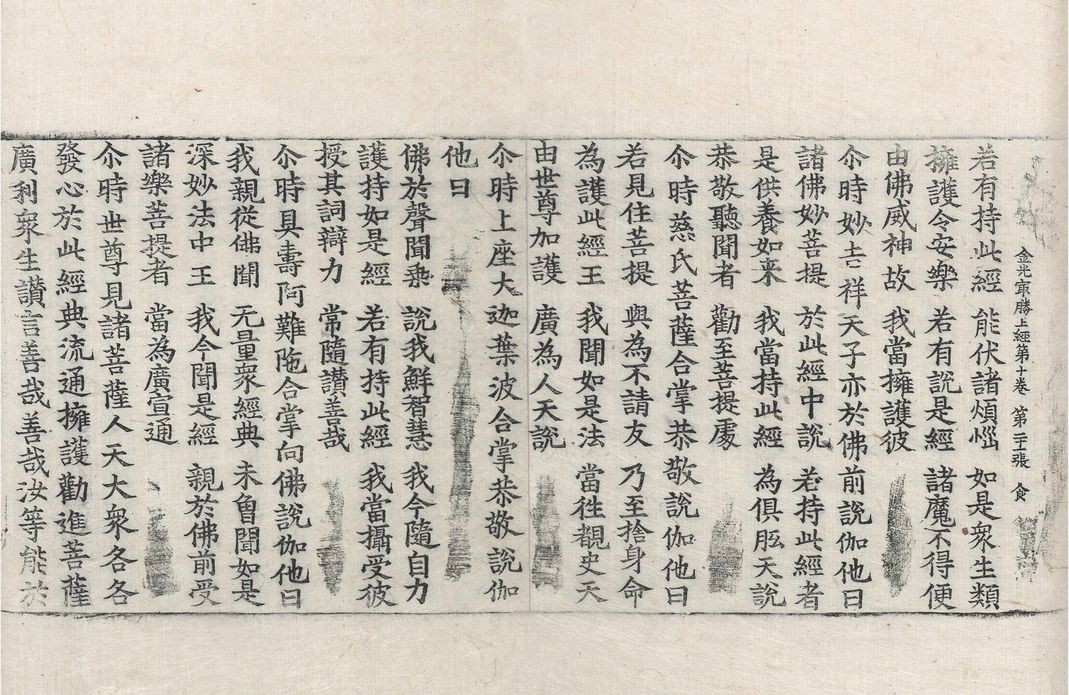 金光冣勝上經第十卷 第 張 食
若有持此經 能伏諸煩惱 如是衆生類
擁護令安樂 若有說是經 諸魔不得便
由佛威神故 我當擁護彼
尒時妙吉祥天子亦於佛前說伽他曰
諸佛妙菩提 於此經中說 若持此經者
是供養如來 我當持此經 為俱胝天說
恭敬聽聞者 勸至菩提處
尒時慈氏菩薩合掌恭敬說伽他曰
若見住菩提 與為不請友 乃至捨身命
為護此經王 我聞如是法 當徃覩史天
由世尊加護 廣為人天說
尒時上座大迦葉波合掌恭敬說伽
他曰
佛於聲聞乘 說我鮮智慧 我今隨自力
護持如是經 若有持此經 我當攝受彼
授其詞辯力 常隨讃善哉
尒時具壽阿難陁合掌向佛說伽他曰
我親從佛聞 无量衆經典 未曾聞如是
深妙法中王 我今聞是經 親於佛前受
諸樂菩提者 當為廣宣通
尒時世尊見諸菩薩人天大衆各各
發心於此經典流通擁護勸進菩薩
廣利衆生讃言善哉善哉汝等能於